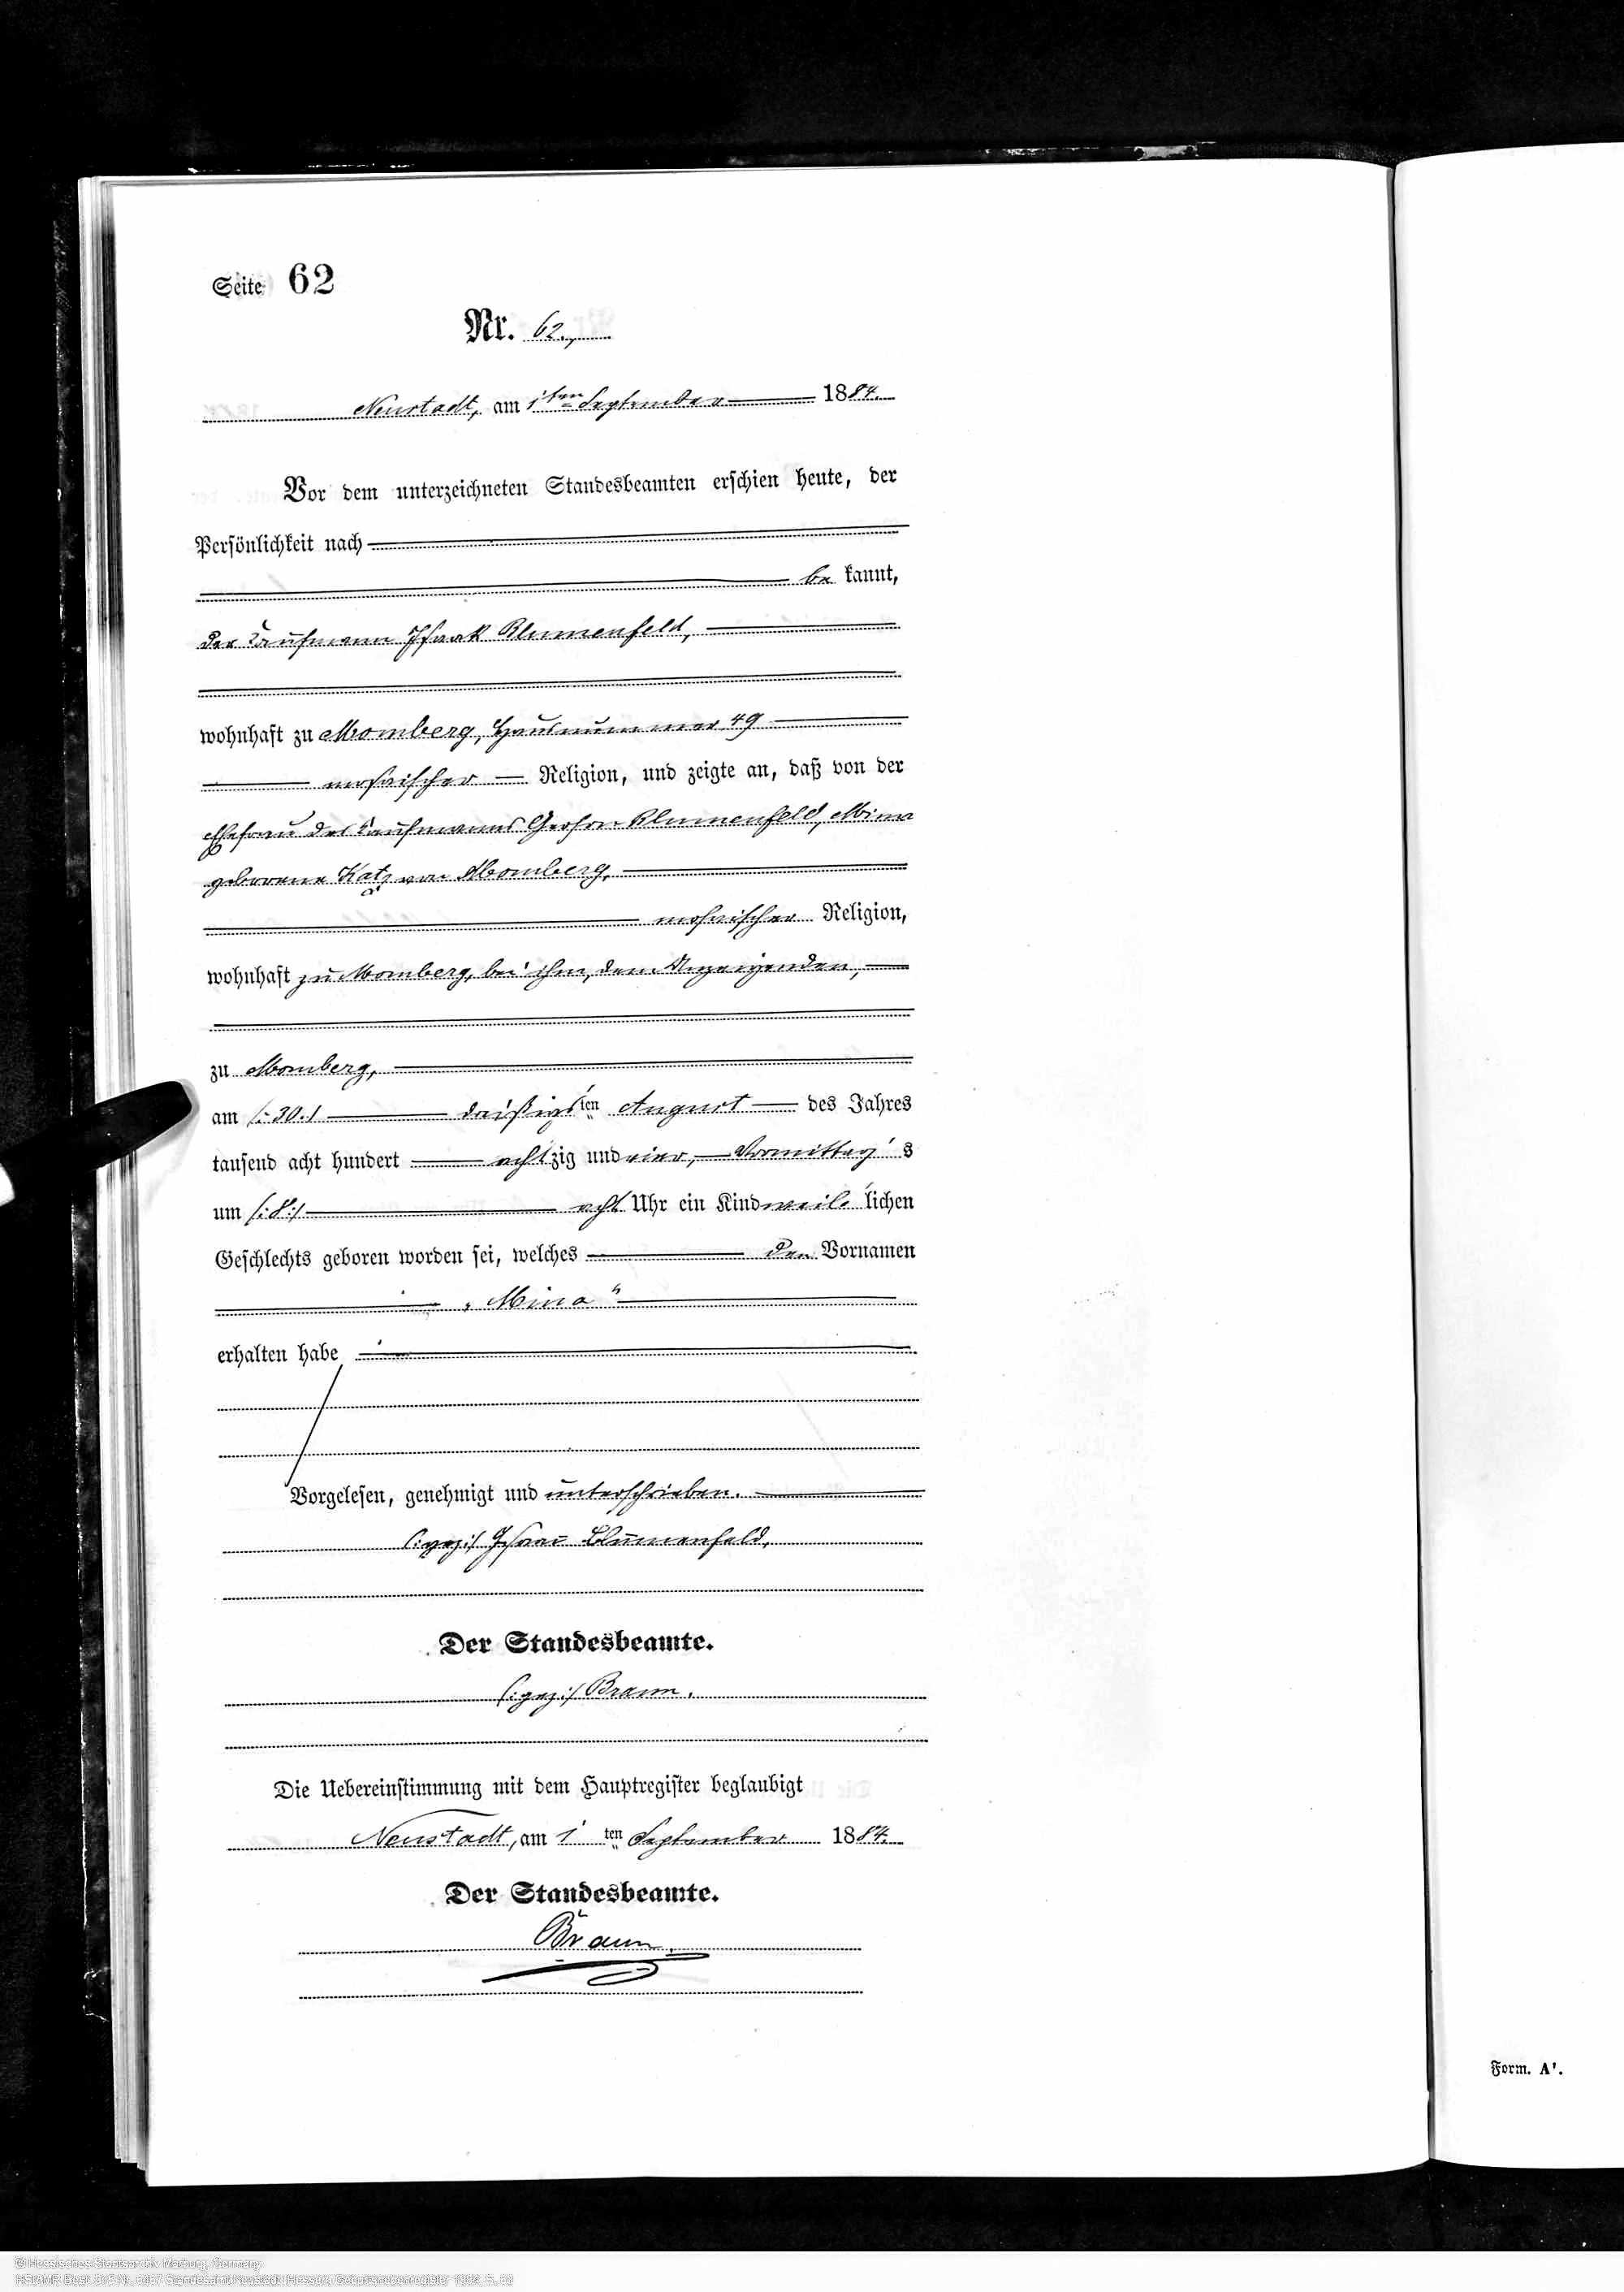 Seite 62
Nr. 62.,
Neustadt, am 1ten September 1884.
Vor dem unterzeichneten Standesbeamten erschien heute, der
Persönlichkeit nach
be kannt,
der Kaufmann Isaak Blumenfeld,
wohnhaft zu Momberg, Hausnummer 49
mosaischer Religion, und zeigte an, daß von der
Ehefrau des Kaufmanns Gerson Blumenfeld, Mina
geborene Katz von Momberg,
mosaischer Religion,
wohnhaft zu Momberg, bei ihm, dem Anzeigenden,
zu Momberg,
am /:30./ dreißigsten August des Jahres
tausend acht hundert achtzig und vier, Vormittags
um /:8:/ acht Uhr ein Kind weiblichen
Geschlechts geboren worden sei, welches den Vornamen
„Mina“
erhalten habe
Vorgelesen, genehmigt und unterschrieben.
/:gez:/ Blumenfeld,
Der Standesbeamte.
/:gez:/ Braun.
Die Uebereinstimmung mit dem Hauptregister beglaubigt
Neustadt, am 1 ten September 1884.
Der Standesbeamte.
Braun.
Form. A¹.
© Hessisches Staatsarchiv Marburg, Germany